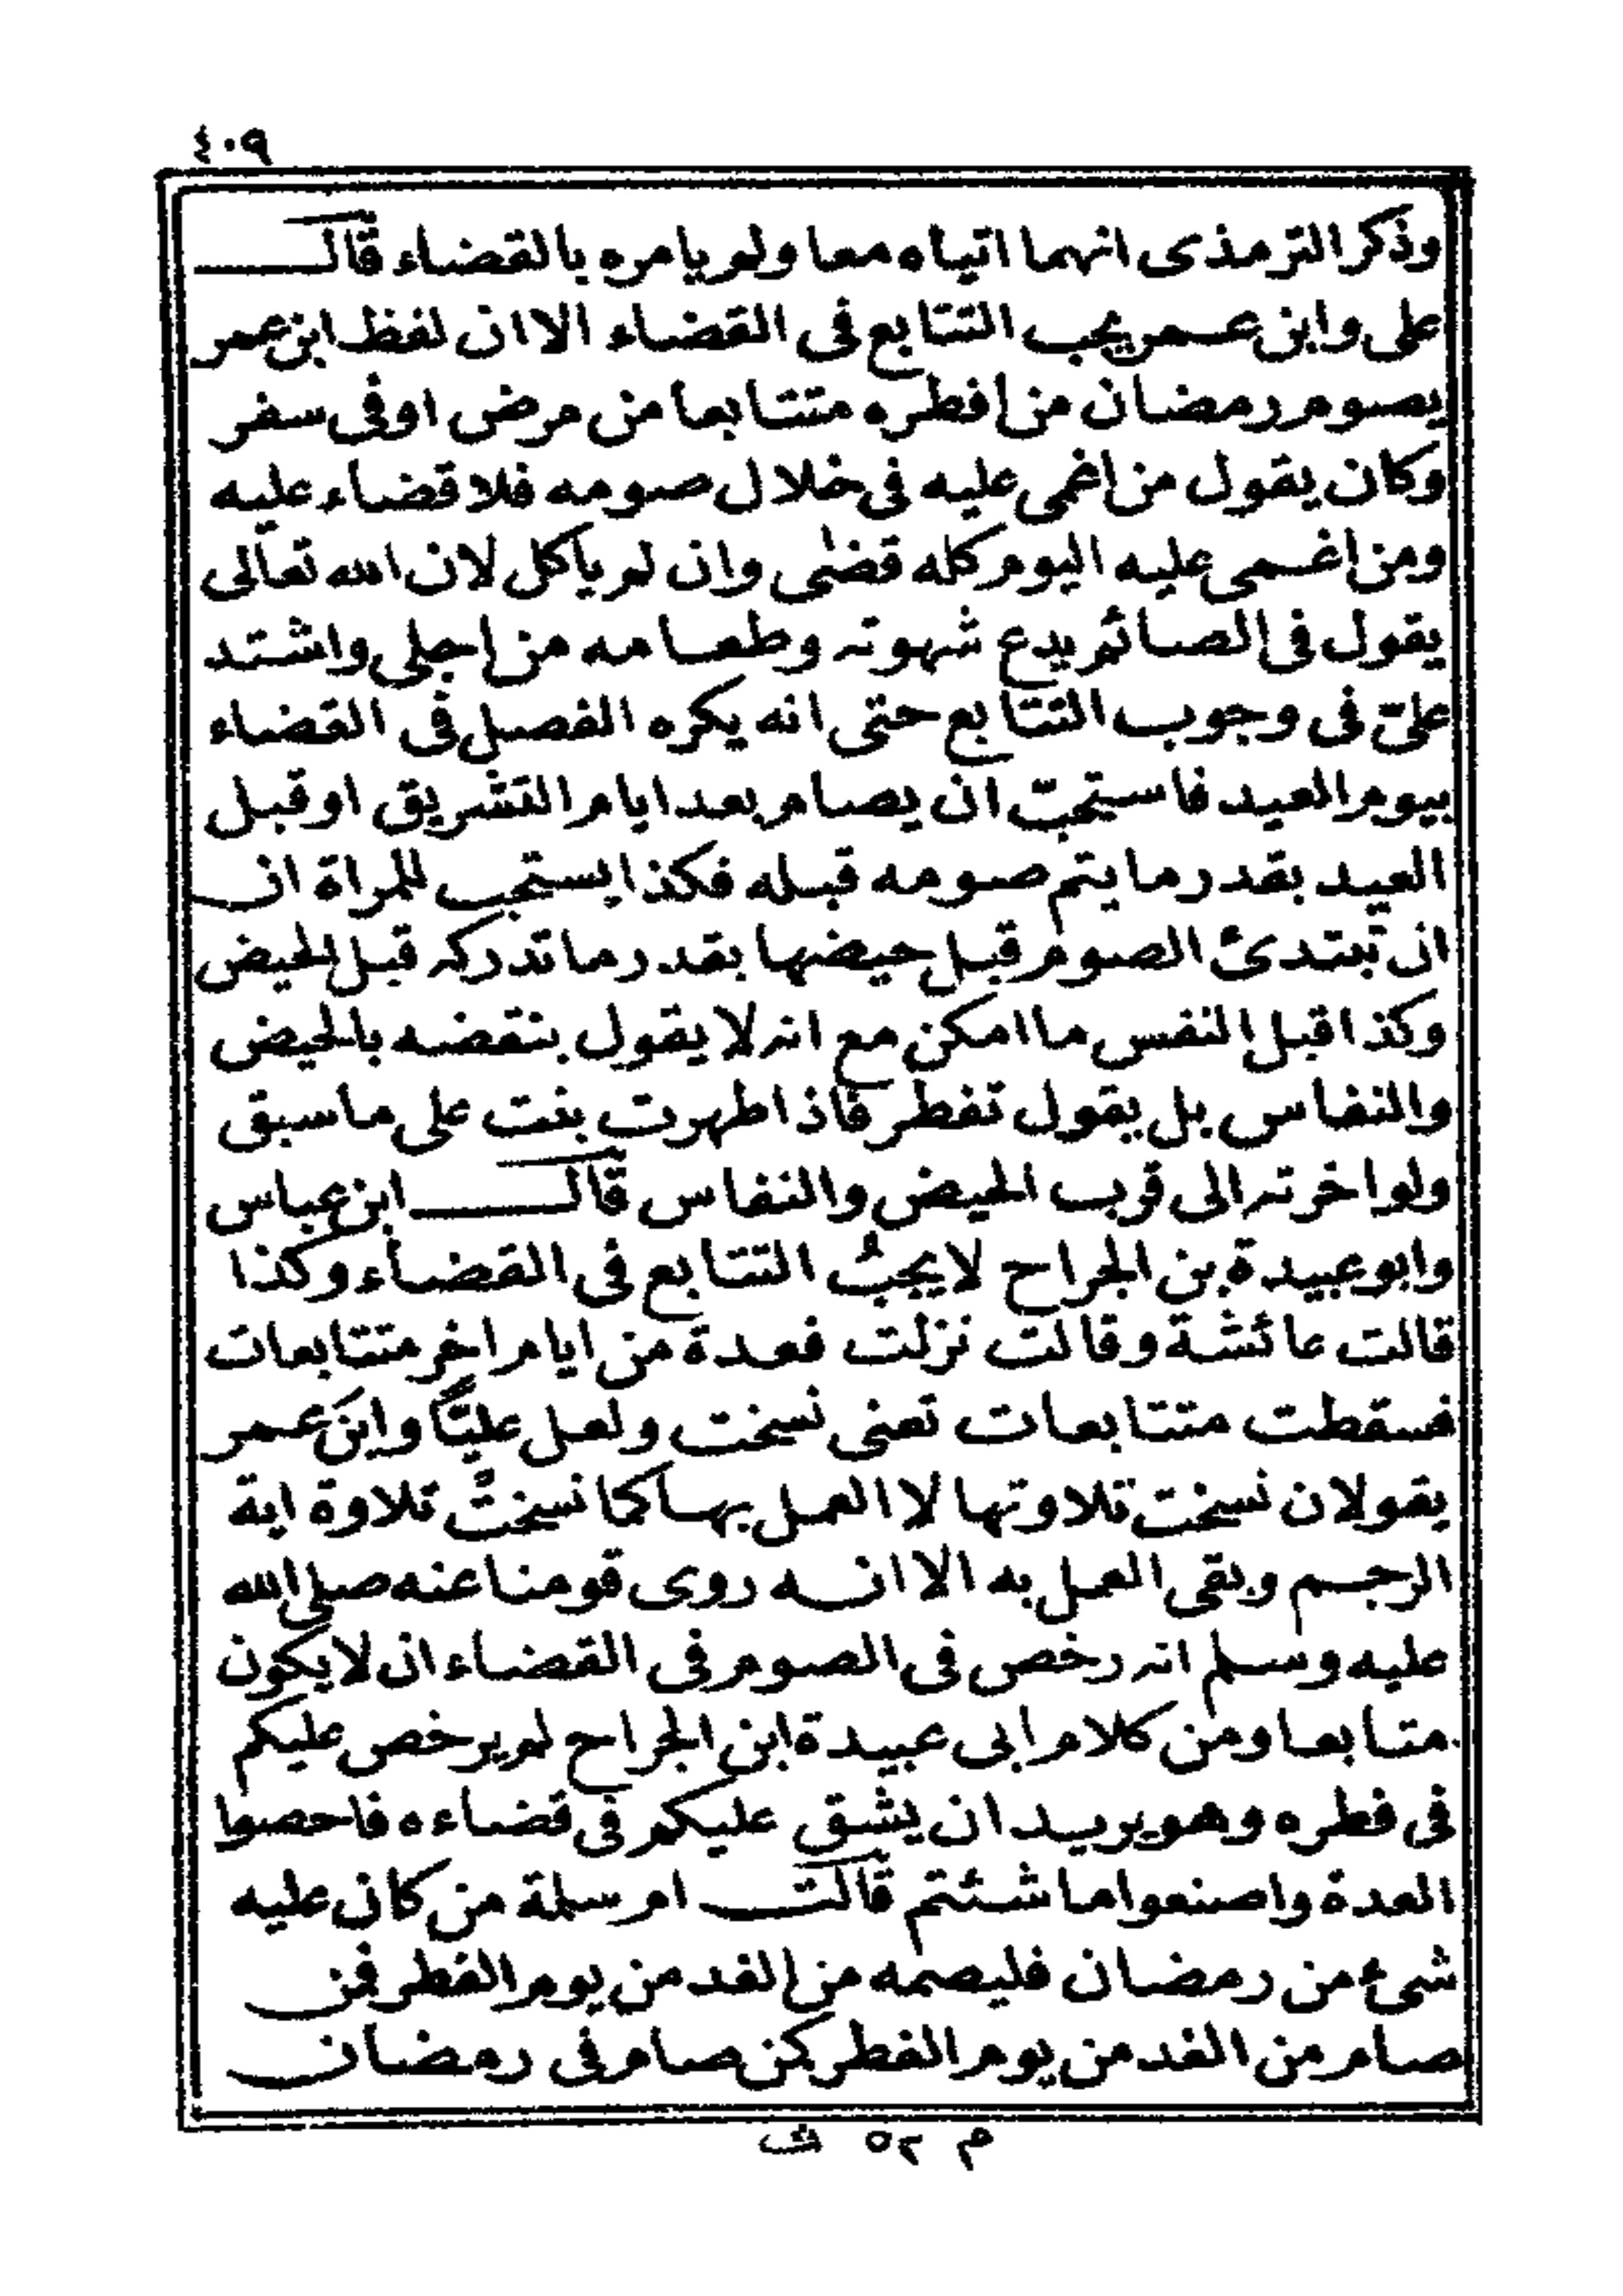 ٤٠٩
وذكر الترمذى انهما اتياه معا ولم يامره بالقضاء قال
على وابن عمر يجب التتابع فى القضاء الا ان لفظ ابن عمر
يصوم رمضان من افطره متتابعا من مرض اوفى سفر
وكان يقول من اغمى عليه فى خلال صومه فلا قضاء عليه
ومن اغمى عليه اليوم كله قضى وان لم ياكل لان الله تعالى
يقول فى الصائم يدع شهوته وطعامه من اجلى واشتد
علىّ فى وجوب التتابع حتى انه يكره الفصل فى القضاء
بيوم العيد فاستحبّ ان يصام بعد ايام التشريق او قبل
العيد بقدر ما يتم صومه قبله فكذا يستحب للمراة ان
ان تبتدئ الصوم قبل حيضها بقدر ما تدركه قبل الحيض
وكذا قبل النفس ما امكن مع انه لا يقول بنقضه بالحيض
والنفاس بل يقول تفطر فاذا طهرت بنت على ما سبق
ولو اخرته الى قرب الحيض والنفاس قال ابن عباس
وابو عبيدة بن الجراح لا يجبُ التتابع فى القضاء وكذا
قالت عائشة وقالت نزلت فعدة من ايام اخر متتابعات
فسقطت متتابعات تعنى نسخت ولعل عليًّا وابنَ عمر
يقولان نسخت تلاوتها لا العمل بها كما نسختْ تلاوة اية
الرجم وبقى العمل به الا انه روى قومنا عنه صلى الله
عليه وسلم انه رخص فى الصوم فى القضاء ان لا يكون
متابعا ومن كلام ابى عبيدة ابن الجراح لم يرخص عليكم
فى فطره وهو يريد ان يشق عليكم فى قضاءه فاحصوا
العدة واصنعوا ما شئتم قالت ام سلمة من كان عليه
شىء من رمضان فليصمه من الغد من يوم الفطر فمن
صام من الغد من يوم الفطر كمن صام فى رمضان
م ٥٢ ش